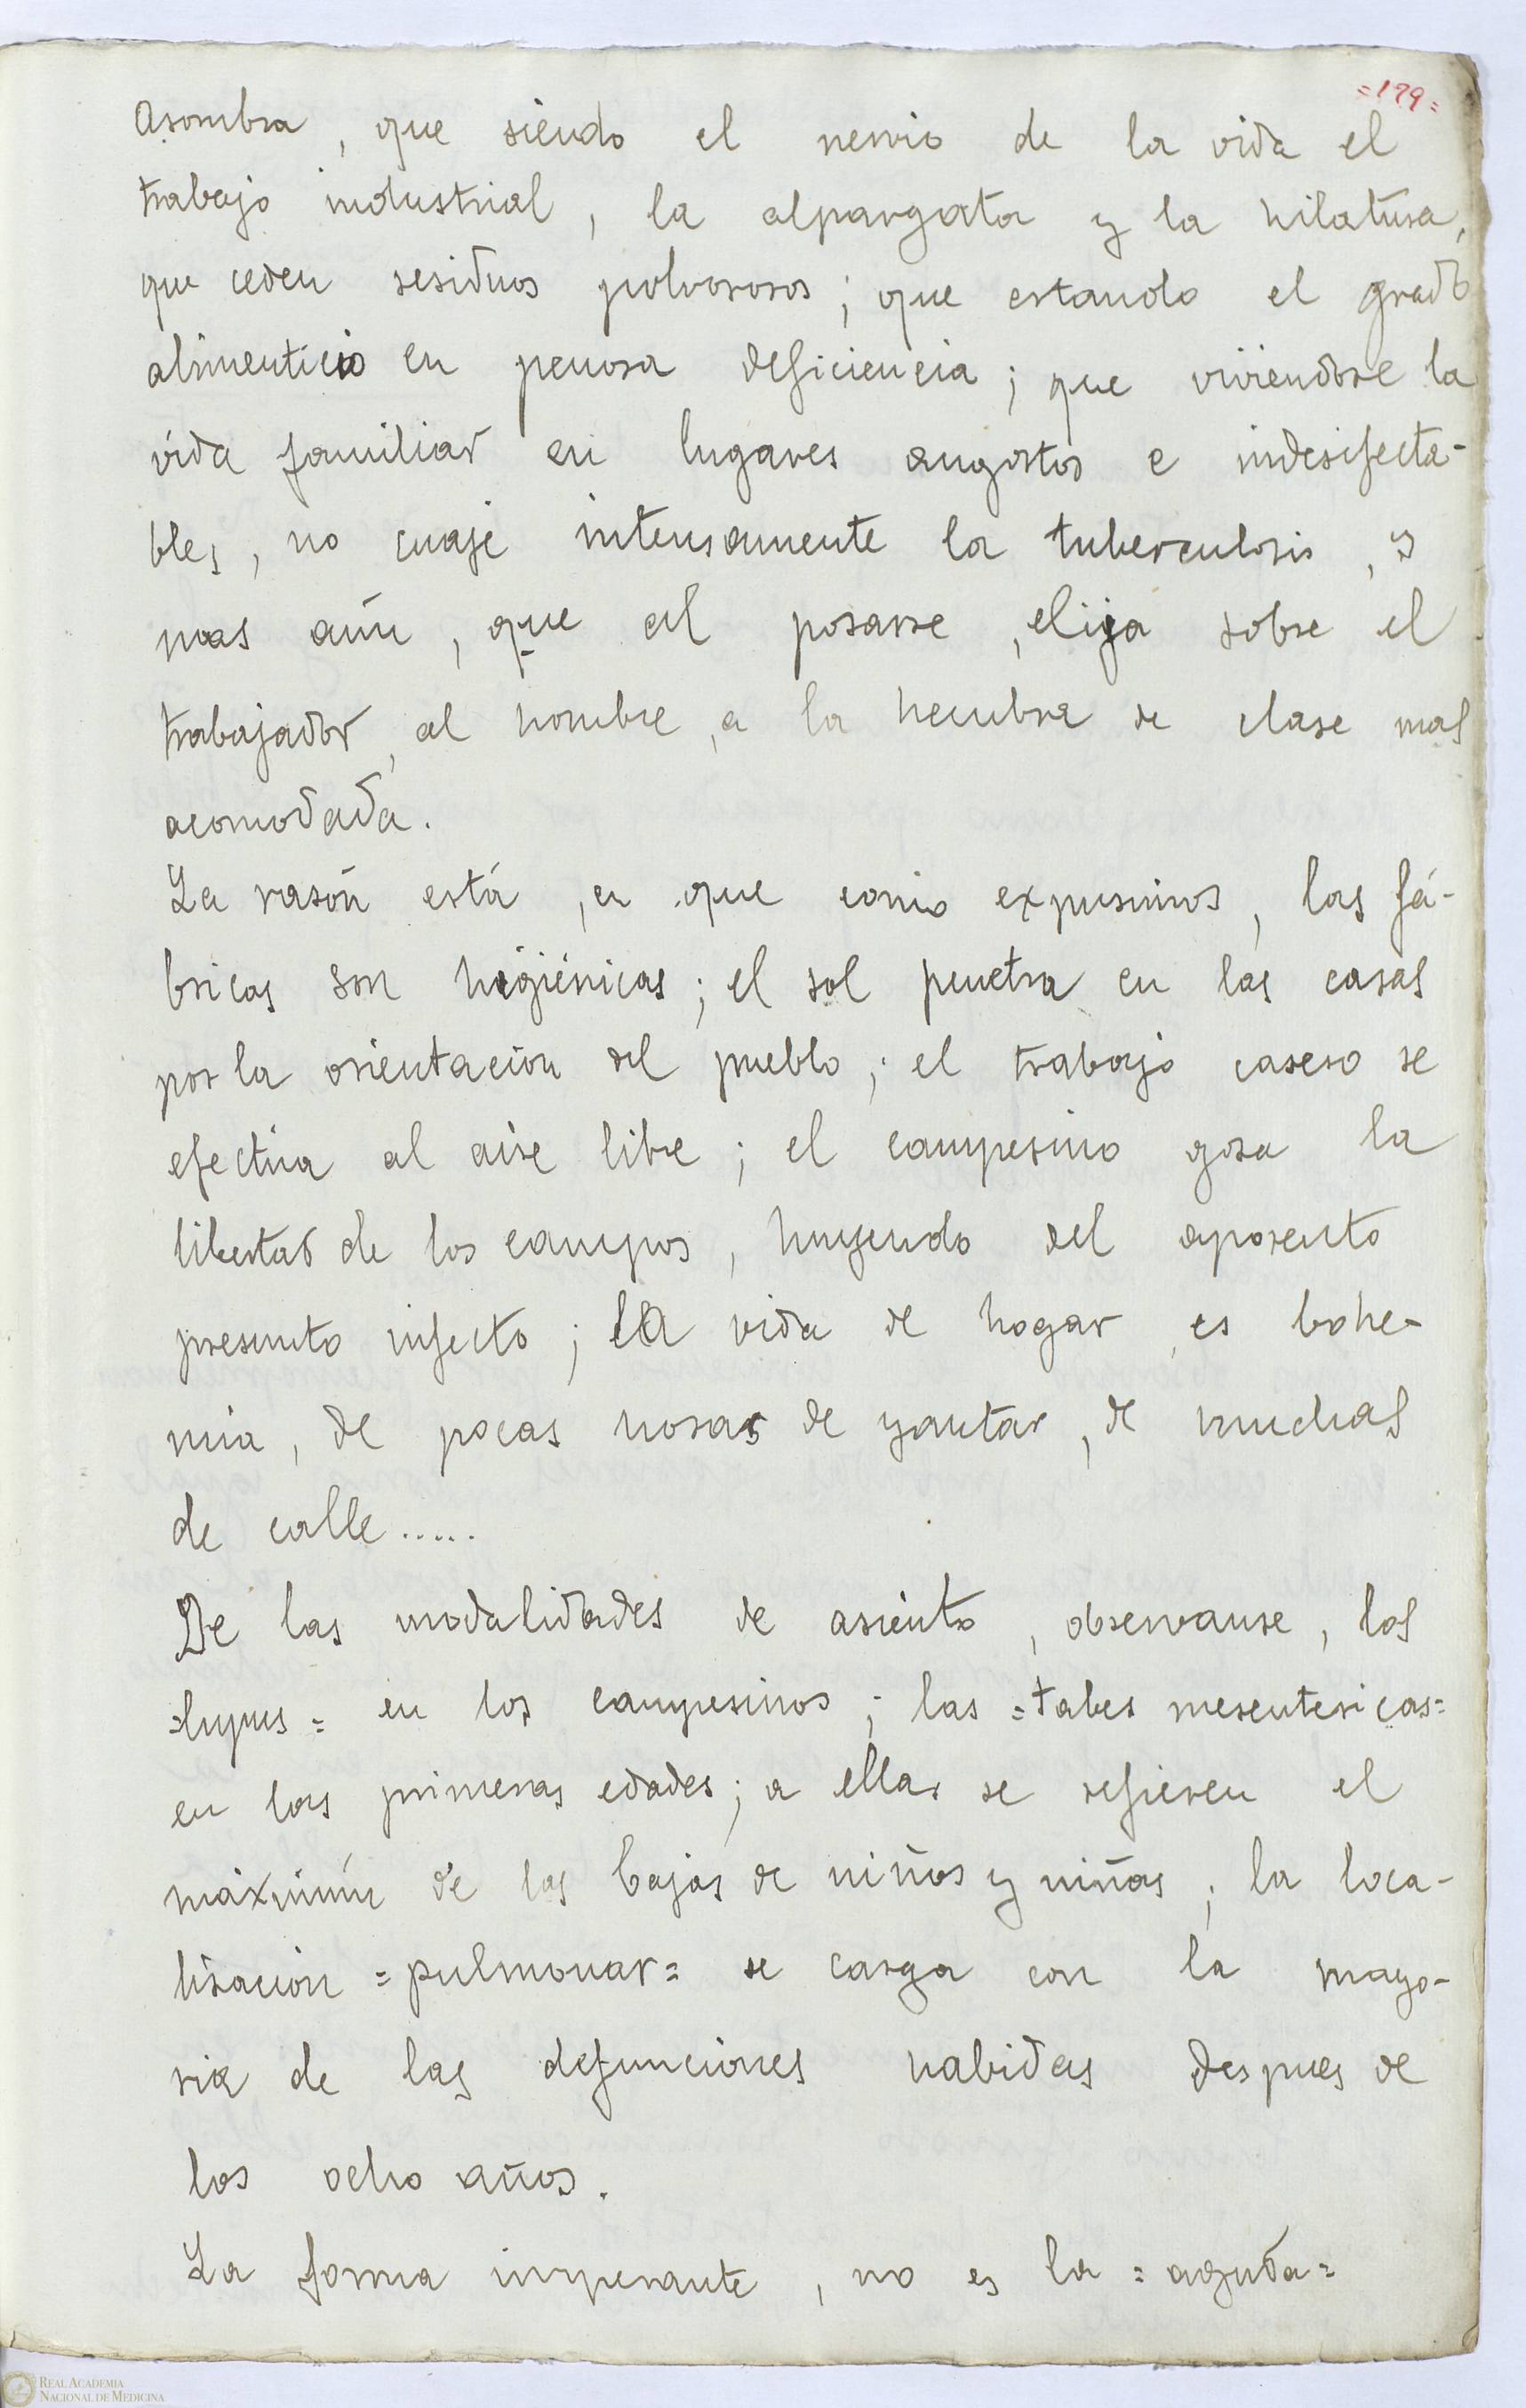 =179=
Asombra, que siendo el nervio de la vida el
trabajo industrial, la alpargata y la hilatura,
que ceden residuos polvorosos; que estando el grado
alimenticio en penosa deficiencia; que viviendose la
vida familiar en lugares angostos e indesifecta-
bles, no cuaje intensamente la tuberculosis, y
mas aún, que al posarse, elija sobre el
trabajador, al hombre, a la hembra de clase mas
acomodada.
La rasón está, en que como expusimos, las fá-
bricas son higiénicas; el sol penetra en las casas
por la orientación del pueblo; el trabajo casero se
efectúa al aire libre; el campesino gosa la
libertad de los campos, huyendo del aposento
presunto infecto; la vida de hogar, es bohe-
mia, de pocas horas de yantar, de muchas
de calle.....
De las modalidades de asiento, observanse, los
=lupus= en los campesinos; las =tabes mesentericas=
en las primeras edades; a ellas se refieren el
máximún de las bajas de niños y niñas; la loca-
lisación =pulmonar= se carga con la mayo-
ria de las defunciones habidas despues de
los ocho años.
La forma imperante, no es la =aguda=
REAL ACADEMIA
NACIONAL DE MEDICINA